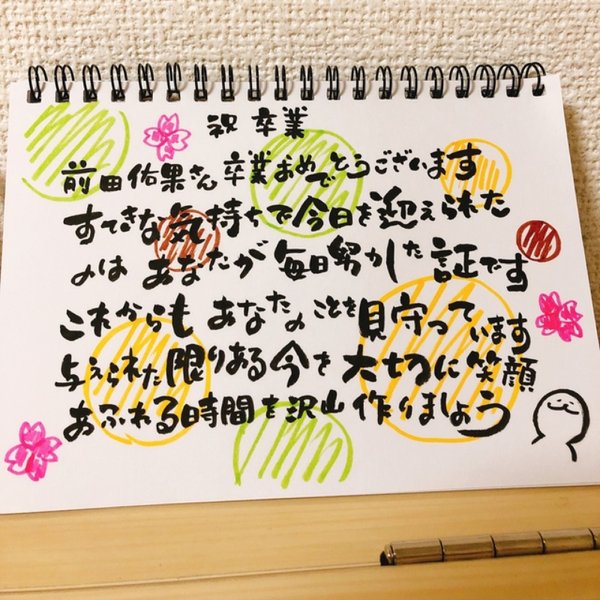 祝卒業
前田佑果さん卒業おめでとうございます
すてきな気持ちで今日を迎えられた
のは あなたが毎日努力した証です
これからも あなたのことを見守っています
与えられた限りある今を大切に笑顔
あふれる時間を沢山作りましょう